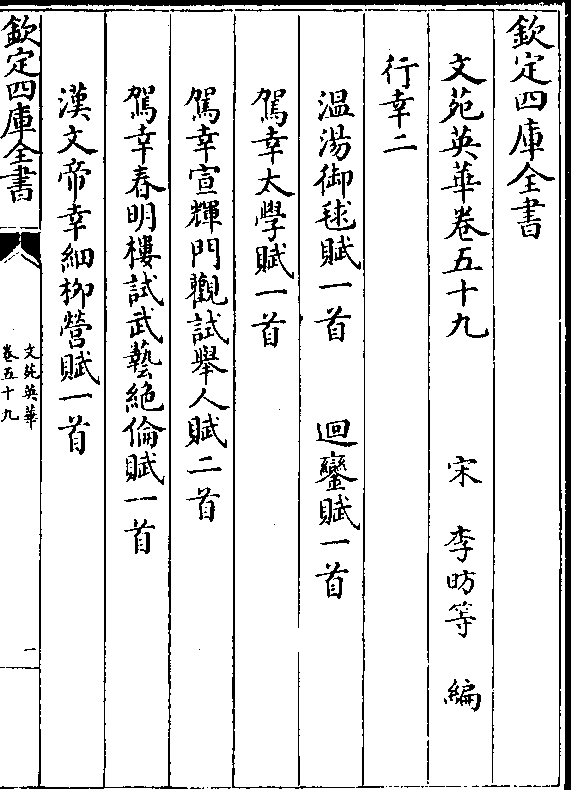 欽定四庫全書
文苑英華卷五十九　　宋　李昉等　編
行幸二
溫湯御毬賦一首　　迴鑾賦一首
駕幸太學賦一首
駕幸宣輝門觀試舉人賦二首
駕幸春明樓試武藝絶倫賦一首
漢文帝幸細柳營賦一首
欽定四庫全書
文苑英華
卷五十九
一